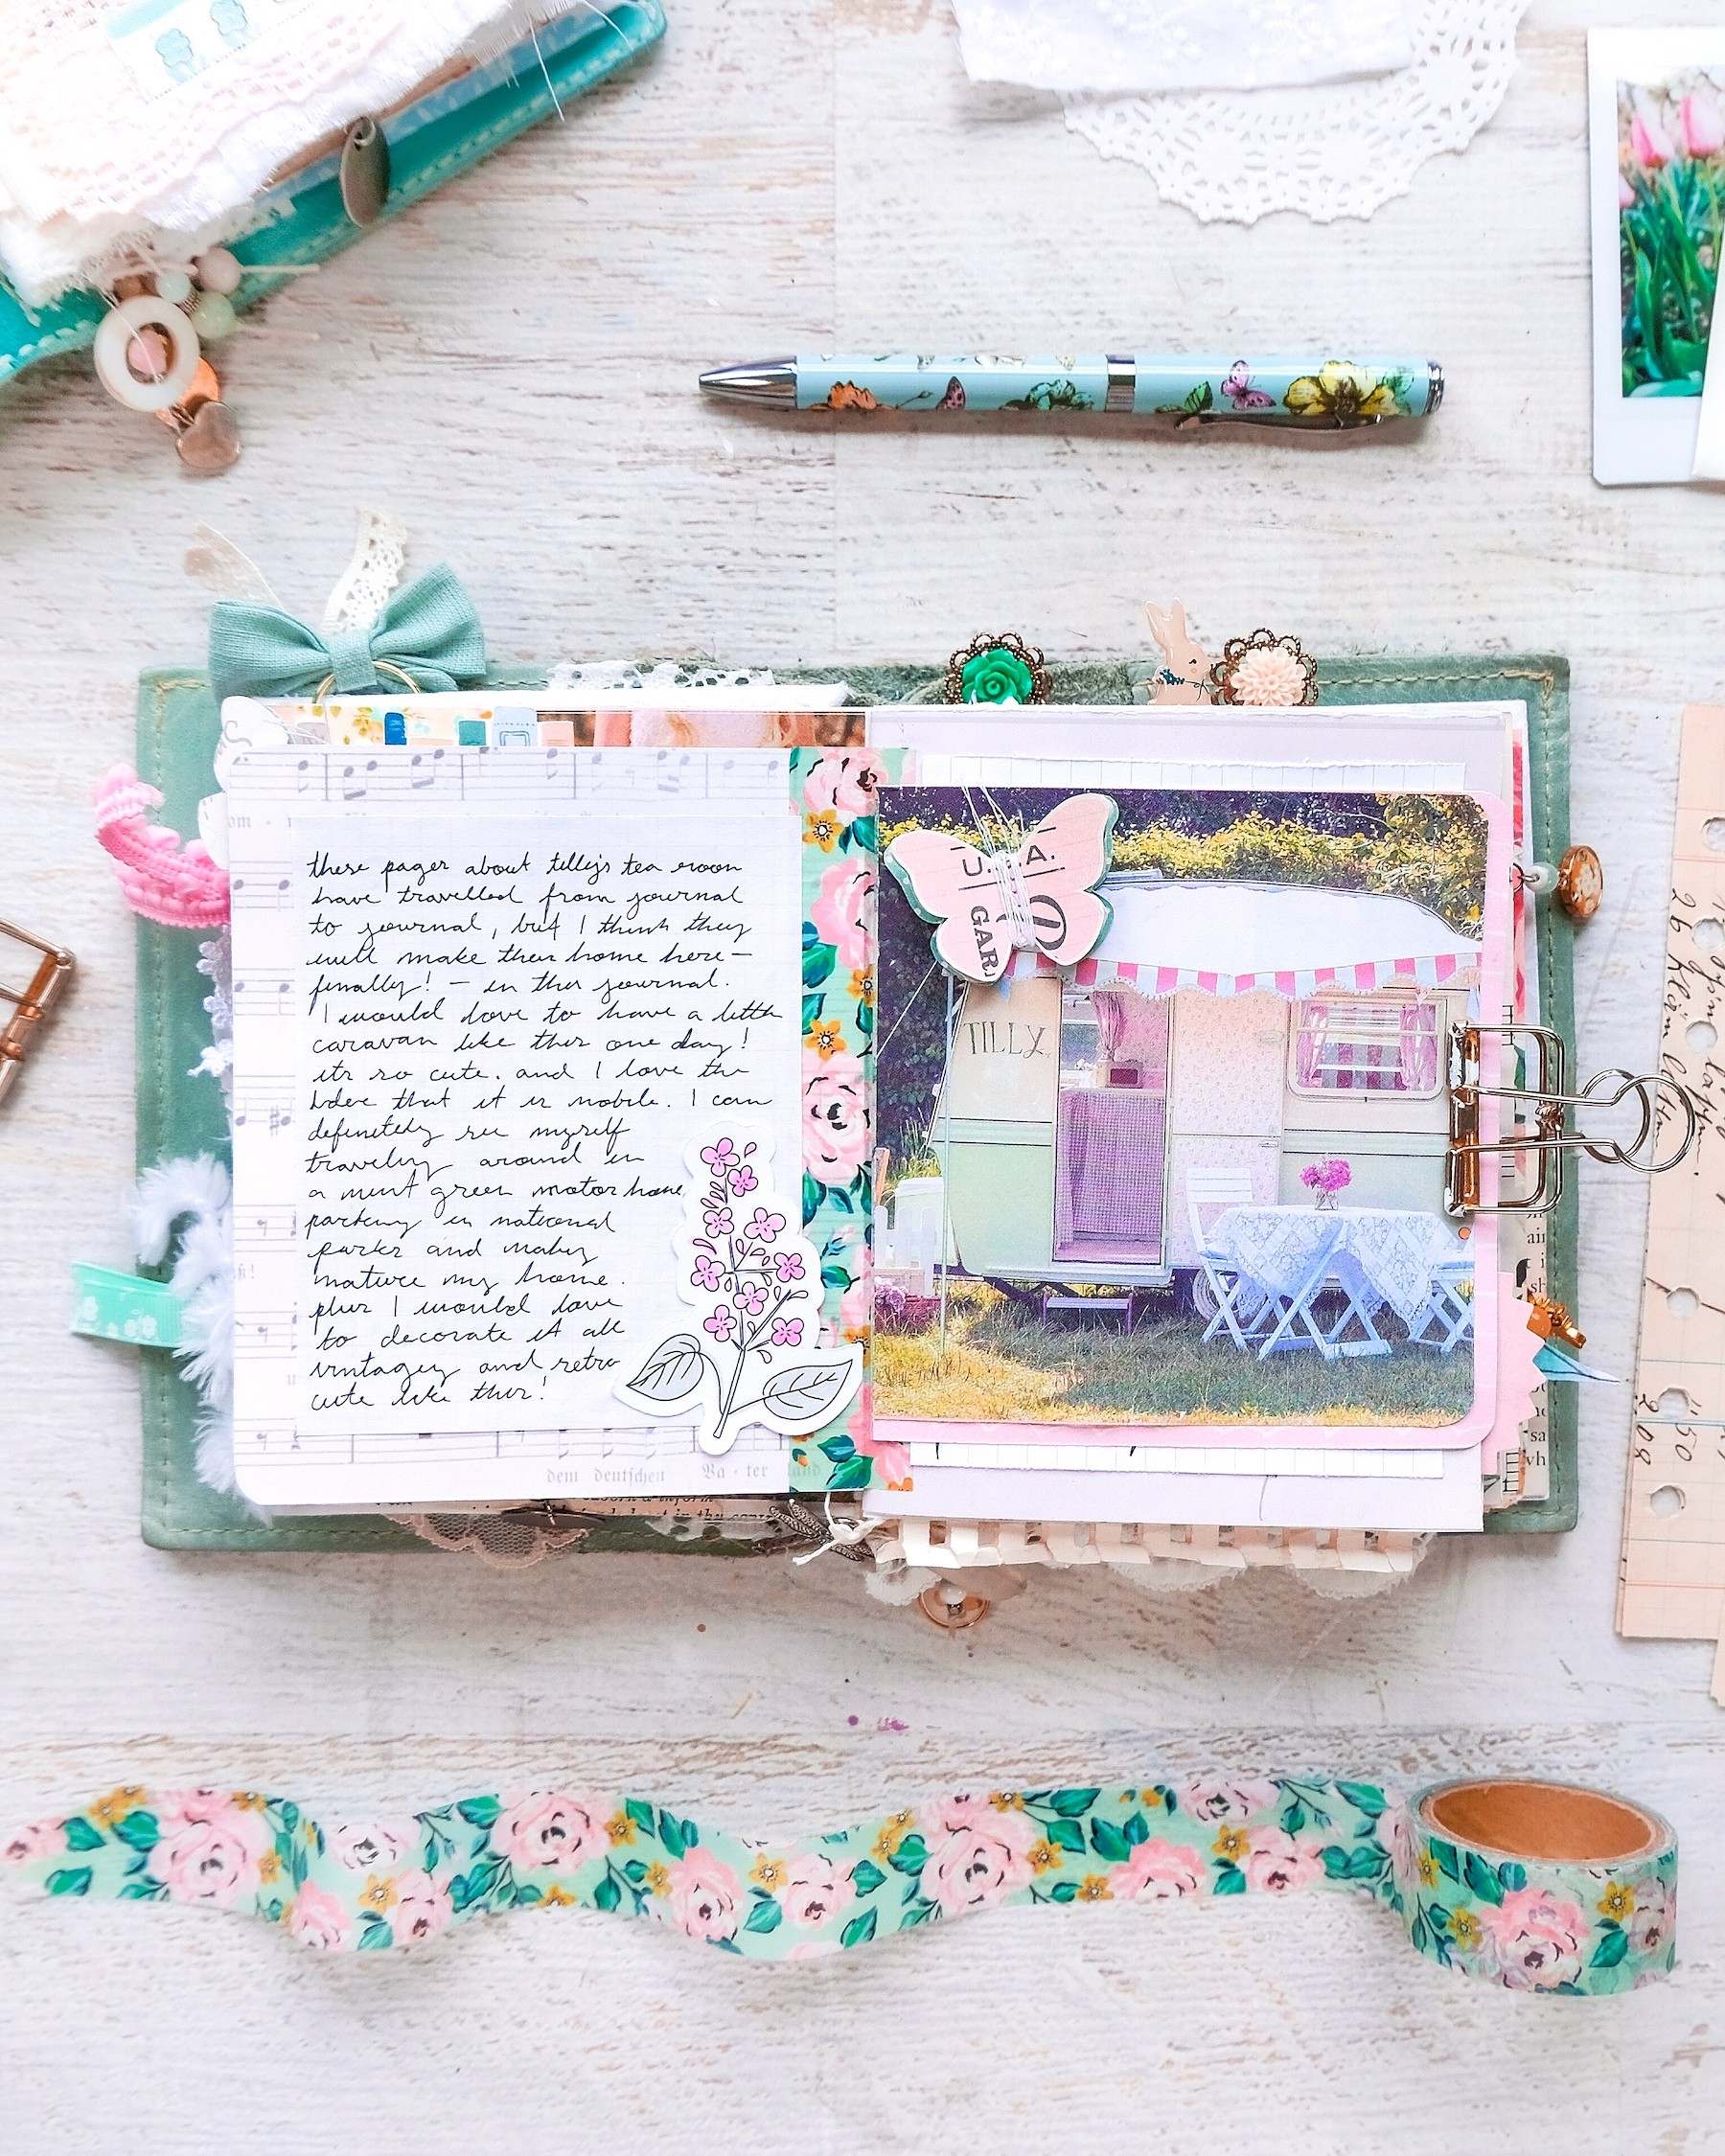 these pages about tilly's tea room
have travelled from journal
to journal, but I think they
will make their home here –
finally! – in this journal.
I would love to have a little
caravan like this one day!
its so cute. and I love the
idea that it is mobile. I can
definitely see myself
traveling around in
a mint green motor home,
parking in national
parks and making
nature my home.
plus I would love
to decorate it all
vintagey and retro
cute like this!
dem deutschen Va - ter land
U. A.
GAR.
TILLY